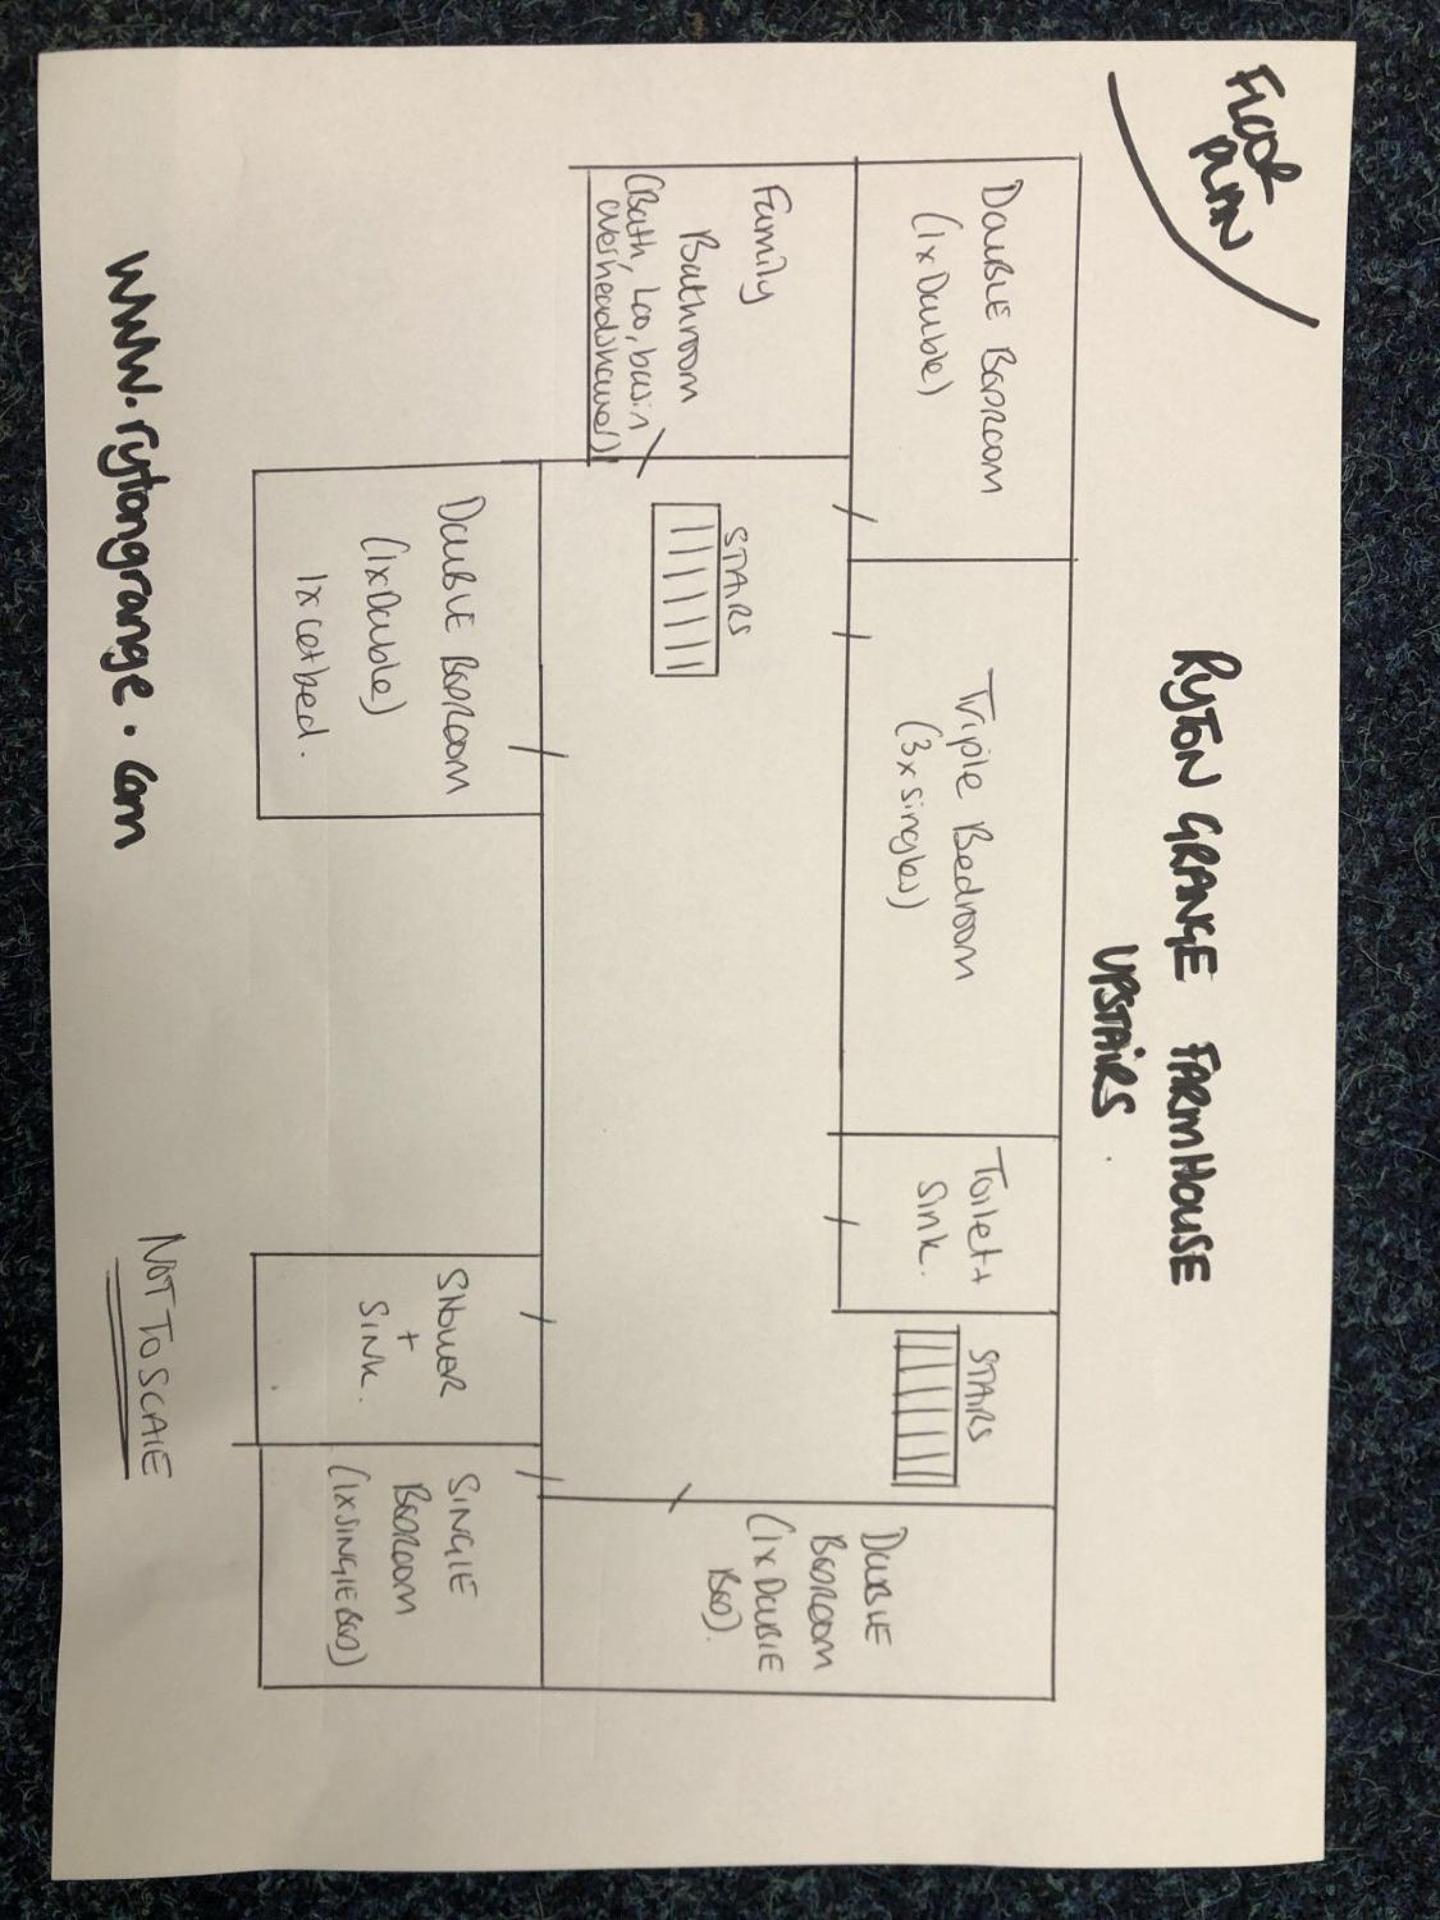 FLOOR
PLAN
RYTON GRANGE FARMHOUSE
UPSTAIRS.
DOUBLE BEDROOM
(1x Double)
Triple Bedroom
(3x singles)
Toilet +
Sink.
STAIRS
Family
Bathroom
(Bath, Loo, basin
overheadshower)
STAIRS
DOUBLE
BEDROOM
(1x DOUBLE
BED).
DOUBLE BEDROOM
(1x Double)
1x cotbed.
SHOWER
+
SINK.
SINGLE
BEDROOM
(1x SINGLE BED)
www.rytongrange.com
NOT TO SCALE